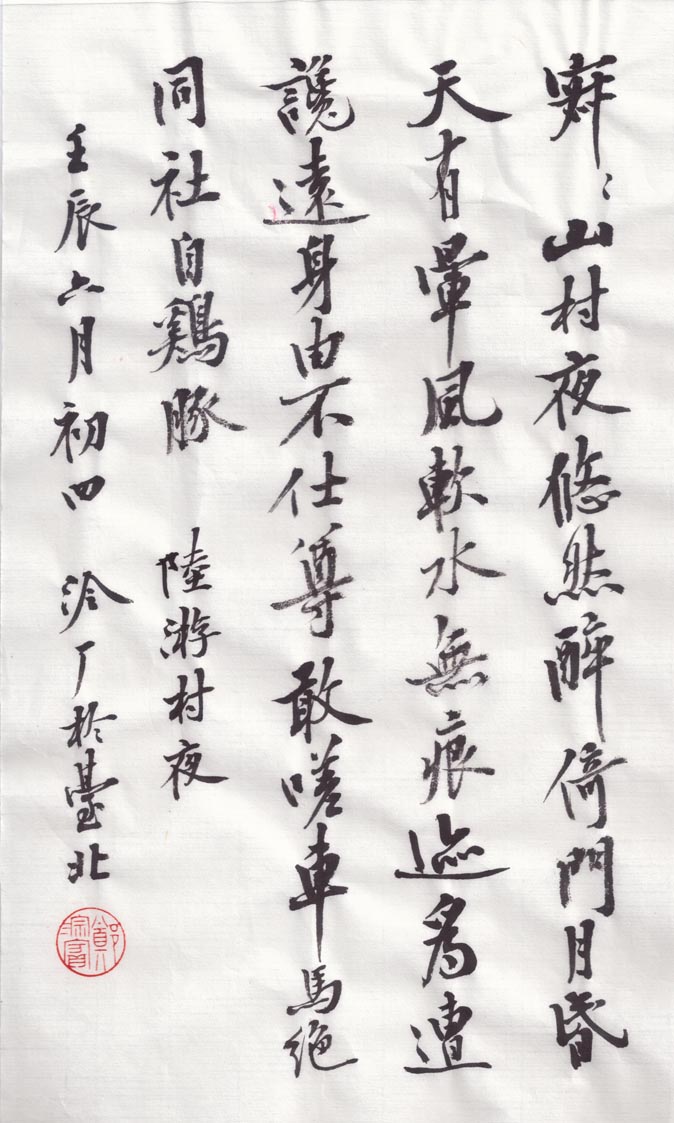 寂〻山村夜悠然醉倚門月昏
天有暈風軟水無痕迹爲遭
讒遠身由不仕尊敢嗟車馬絕
同社自鷄豚 陸游村夜
壬辰六月初四 於臺北